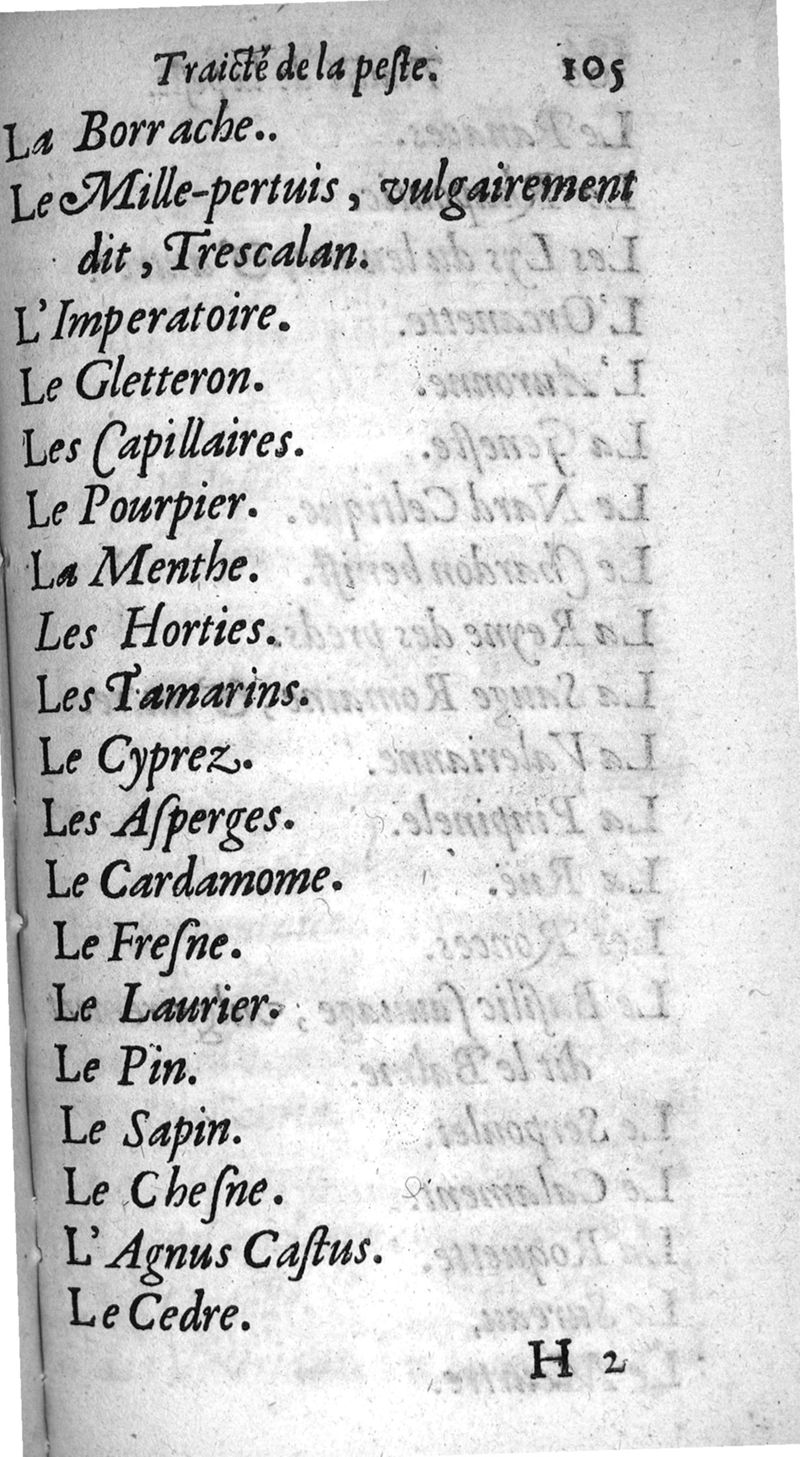 Traicté de la peſte. 105
La Borrache..
Le Mille-pertuis, vulgairement
dit, Trescalan.
L'Imperatoire.
Le Gletteron.
Les Capillaires.
Le Pourpier.
La Menthe.
Les Horties.
Les Tamarins.
Le Cyprez.
Les Aſperges.
Le Cardamome.
Le Freſne.
Le Laurier.
Le Pin.
Le Sapin.
Le Cheſne.
L'Agnus Caſtus.
Le Cedre.
H 2